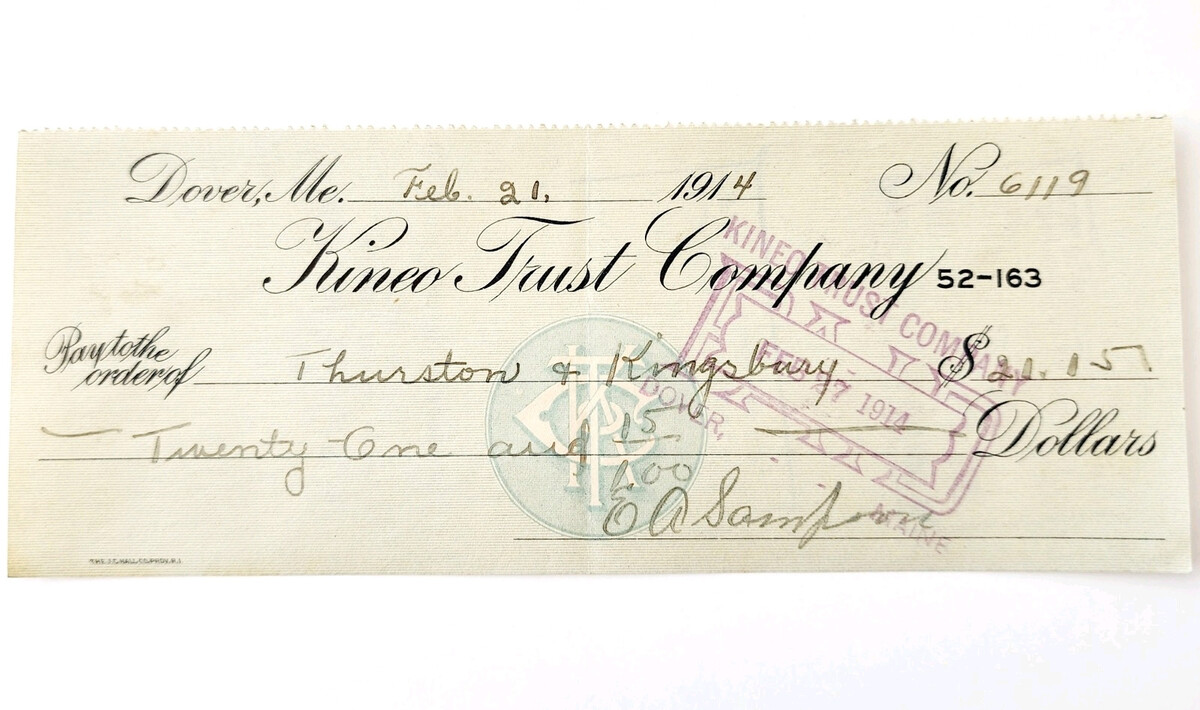 Dover, Me. Feb. 21, 1914 No. 6119
Kineo Trust Company 52-163
Pay to the
order of Thurston & Kingsbury $21.15
Twenty One and 15/100 Dollars
E A Sampson
KINEO TRUST COMPANY
FEB 27 1914
DOVER,
MAINE
THE J.C. HALL CO. PROV. R.I.